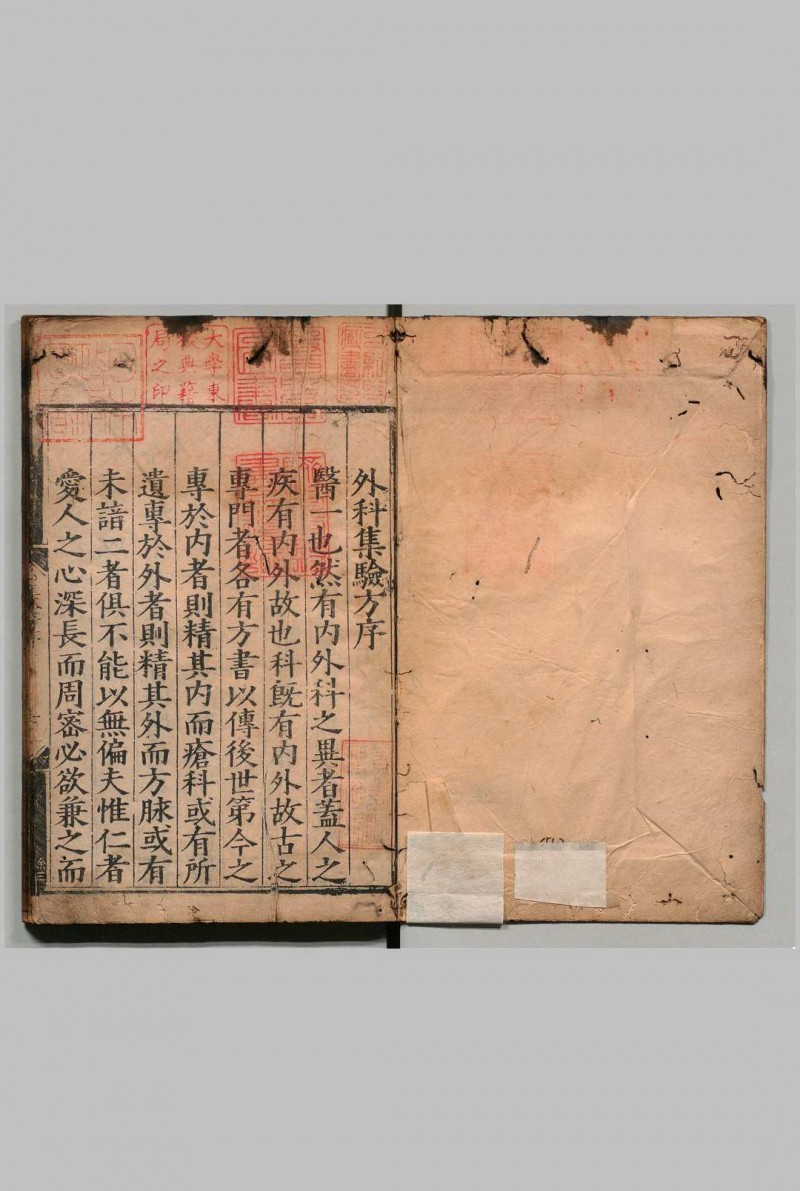 外科集驗方序
醫一也然有內外科之異者蓋人之
疾有內外故也科既有內外故古之
專門者各有方書以傳後世第今之
專於內者則精其內而瘡科或有所
遺專於外者則精其外而方脉或有
未諳二者俱不能以無偏夫惟仁者
愛人之心深長而周審必欲兼之而
大學東
校典籍
局之印